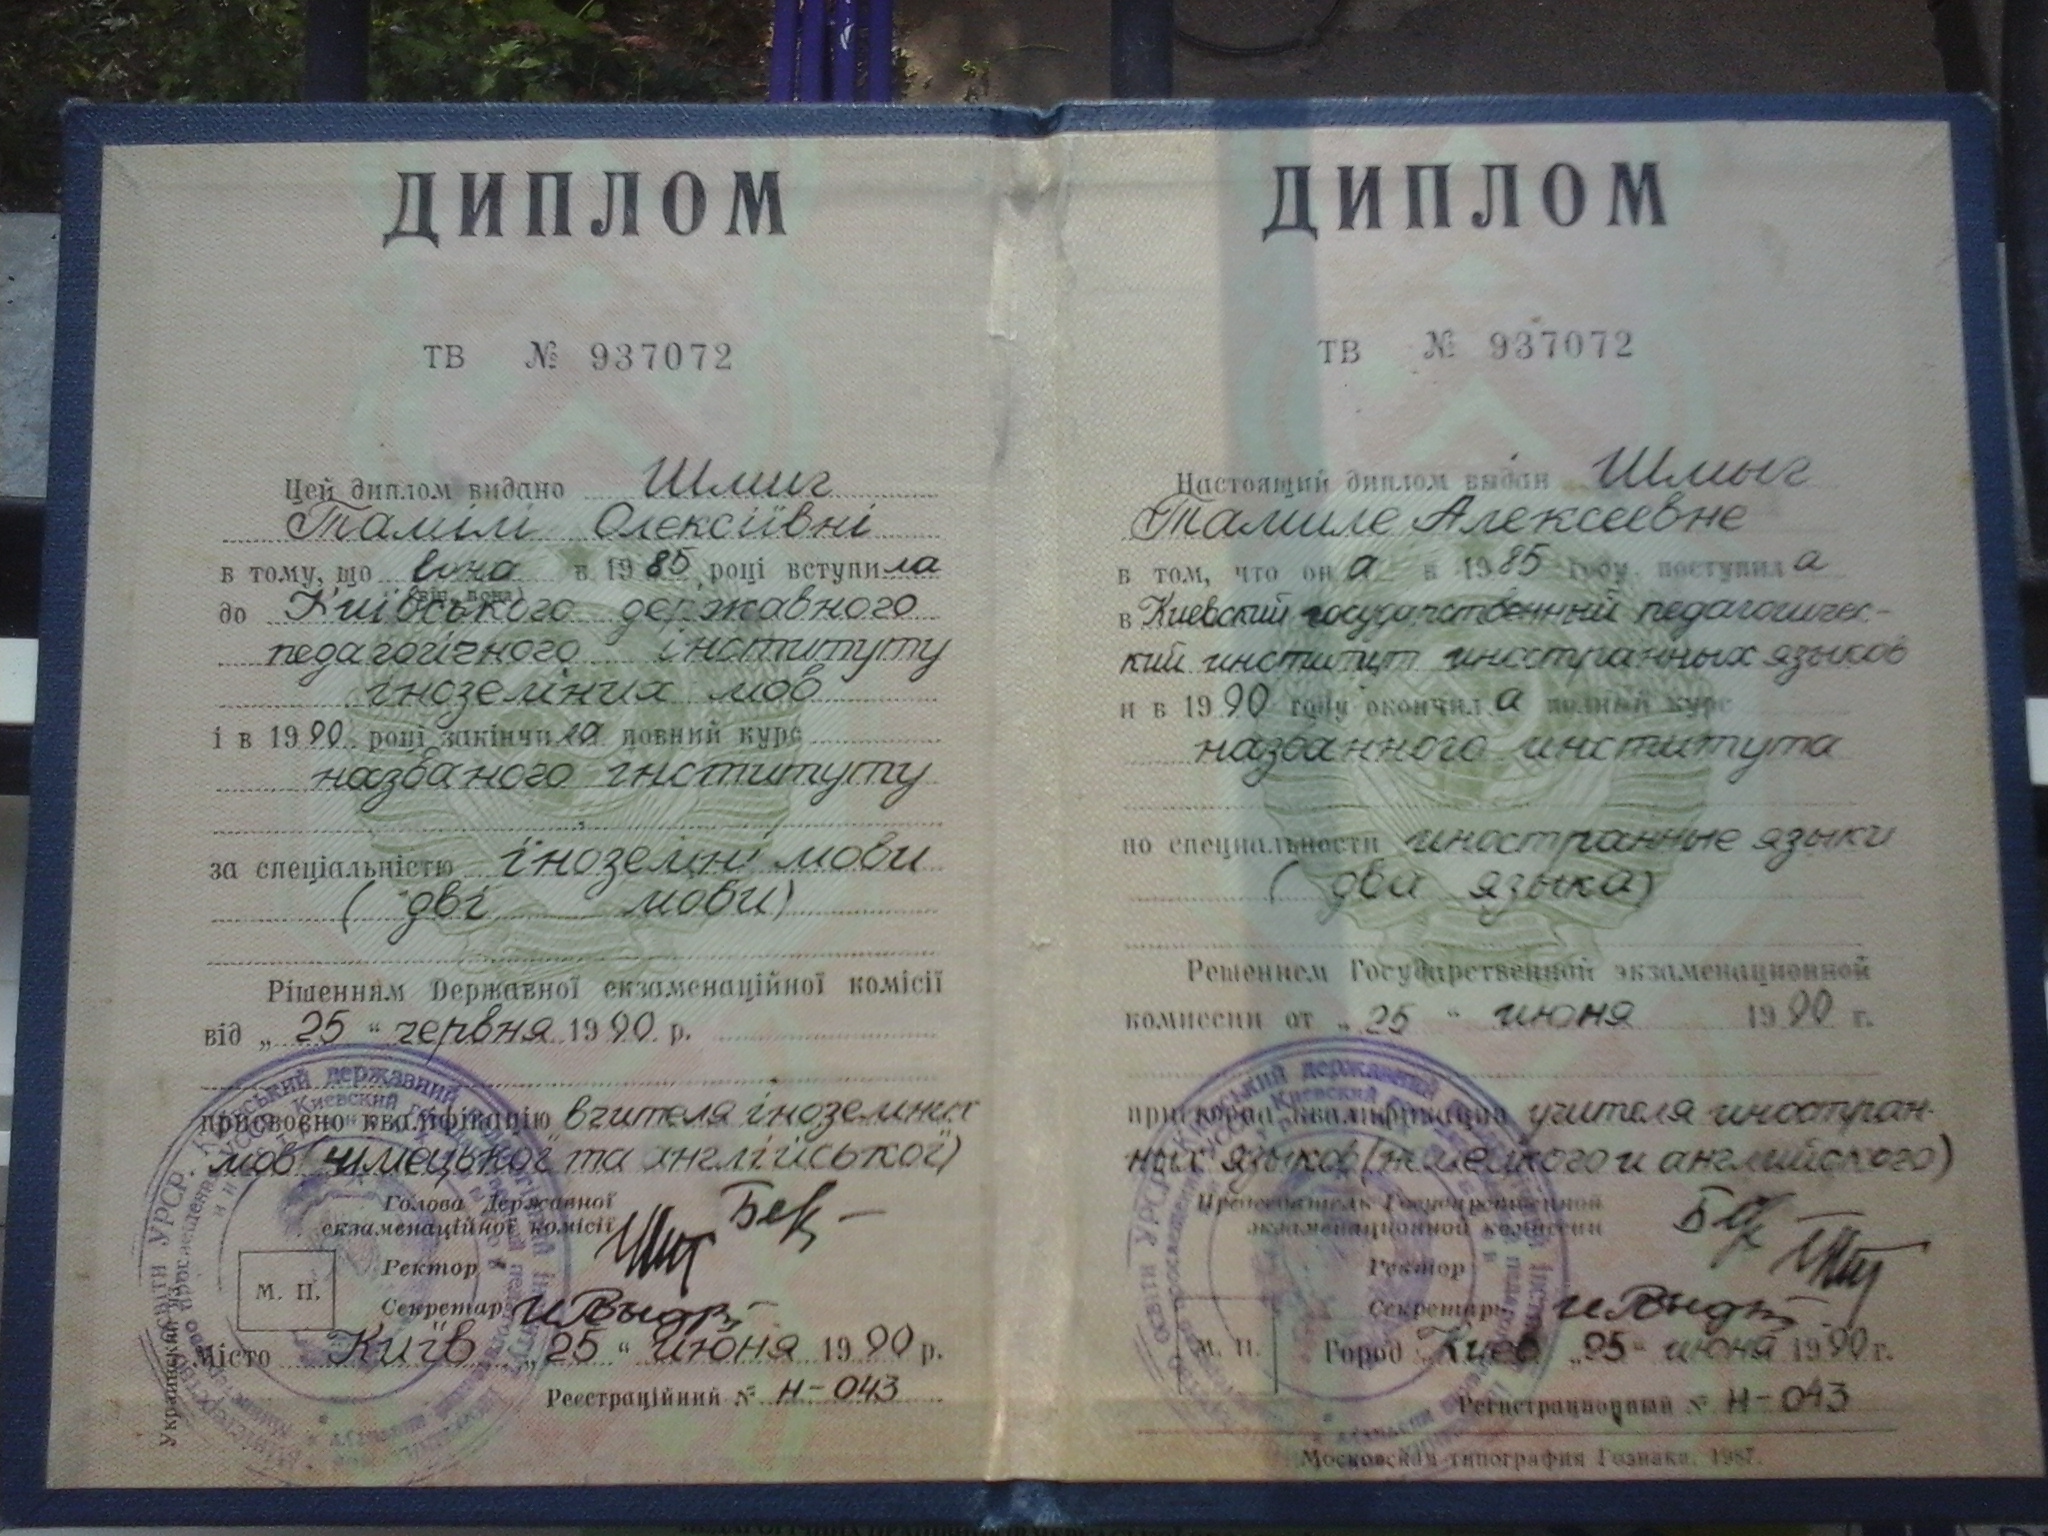 ДИПЛОМ
ТВ № 937072
Цей диплом видано Шмиг
Тамілі Олексіївні
в тому, що вона в 1985 році вступила
(він, вона)
до Київського державного
педагогічного інституту
іноземних мов
і в 1990 році закінчила повний курс
названого інституту
за спеціальністю іноземні мови
(дві мови)
Рішенням Державної екзаменаційної комісії
від „25“ червня 1990 р.
присвоєно кваліфікацію вчителя іноземних
мов (німецької та англійської)
Голова Державної
екзаменаційної комісії
Ректор
М. П.
Секретар
місто Київ „25“ июня 1990 р.
Реєстраційний № Н-043
ДИПЛОМ
ТВ № 937072
Настоящий диплом выдан Шмыг
Тамиле Алексеевне
в том, что она в 1985 году поступила
в Киевский государственный педагогичес-
кий институт иностранных языков
и в 1990 году окончила полный курс
названного института
по специальности иностранные языки
(два языка)
Решением Государственной экзаменационной
комиссии от „25“ июня 1990 г.
присвоена квалификация учителя иностран-
ных языков (немецкого и английского)
Председатель Государственной
экзаменационной комиссии
Ректор
Секретарь
М. П.
Город Киев „25“ июня 1990 г.
Регистрационный № Н-043
Московская типография Гознака. 1987.